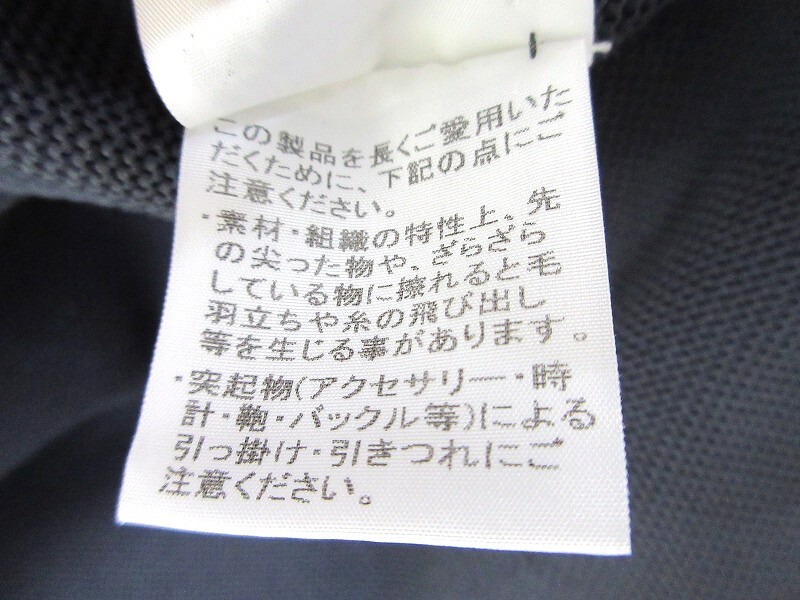 この製品を長くご愛用いた
だくために、下記の点にご
注意ください。
・素材・組織の特性上、先
の尖った物や、ざらざら
している物に擦れると毛
羽立ちや糸の飛び出し
等を生じる事があります。
・突起物(アクセサリー・時
計・鞄・バックル等)による
引っ掛け・引きつれにご
注意ください。